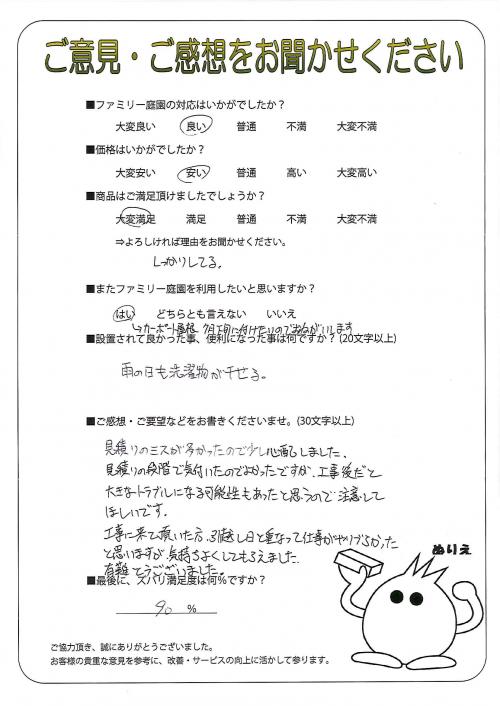 ご意見・ご感想をお聞かせください
■ファミリー庭園の対応はいかがでしたか？
大変良い 良い 普通 不満 大変不満
■価格はいかがでしたか？
大変安い 安い 普通 高い 大変高い
■商品はご満足頂けましたでしょうか？
大変満足 満足 普通 不満 大変不満
⇒よろしければ理由をお聞かせください。
しっかりしてる。
■またファミリー庭園を利用したいと思いますか？
はい どちらとも言えない いいえ
↳カーポート屋根 7月下旬に付けたいのでお願いします
■設置されて良かった事、便利になった事は何ですか？(20文字以上)
雨の日も洗濯物が干せる。
■ご感想・ご要望などをお書きくださいませ。(30文字以上)
見積りのミスが多かったので少し心配しました。
見積りの段階で気付いたのでよかったですが、工事後だと
大きなトラブルになる可能性もあったと思うので注意して
ほしいです。
工事に来て頂いた方、引越し日と重なって仕事がやりづらかった
と思いますが気持ちよくしてもらえました。
有難とうございました。
ぬりえ
■最後に、ズバリ満足度は何%ですか？
90 %
ご協力頂き、誠にありがとうございました。
お客様の貴重な意見を参考に、改善・サービスの向上に活かして参ります。